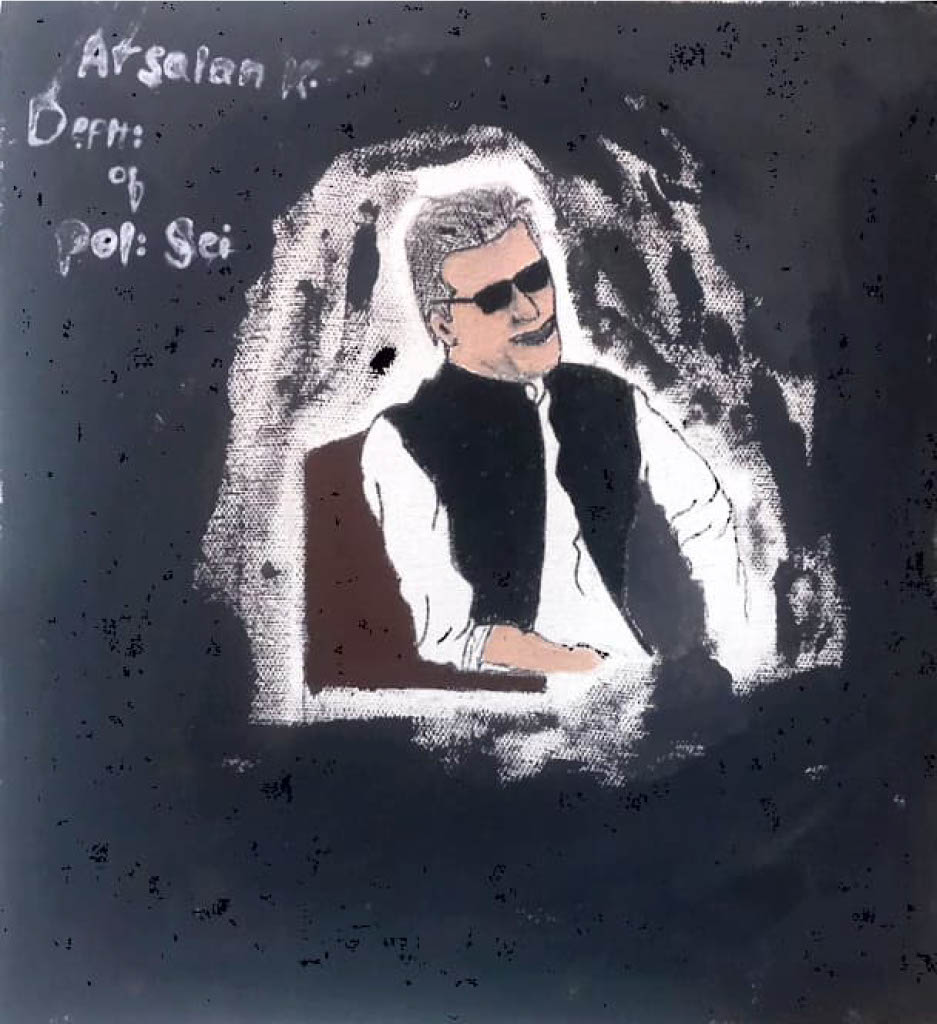 Arsalan K.
Deptt:
of
Pol: Sci